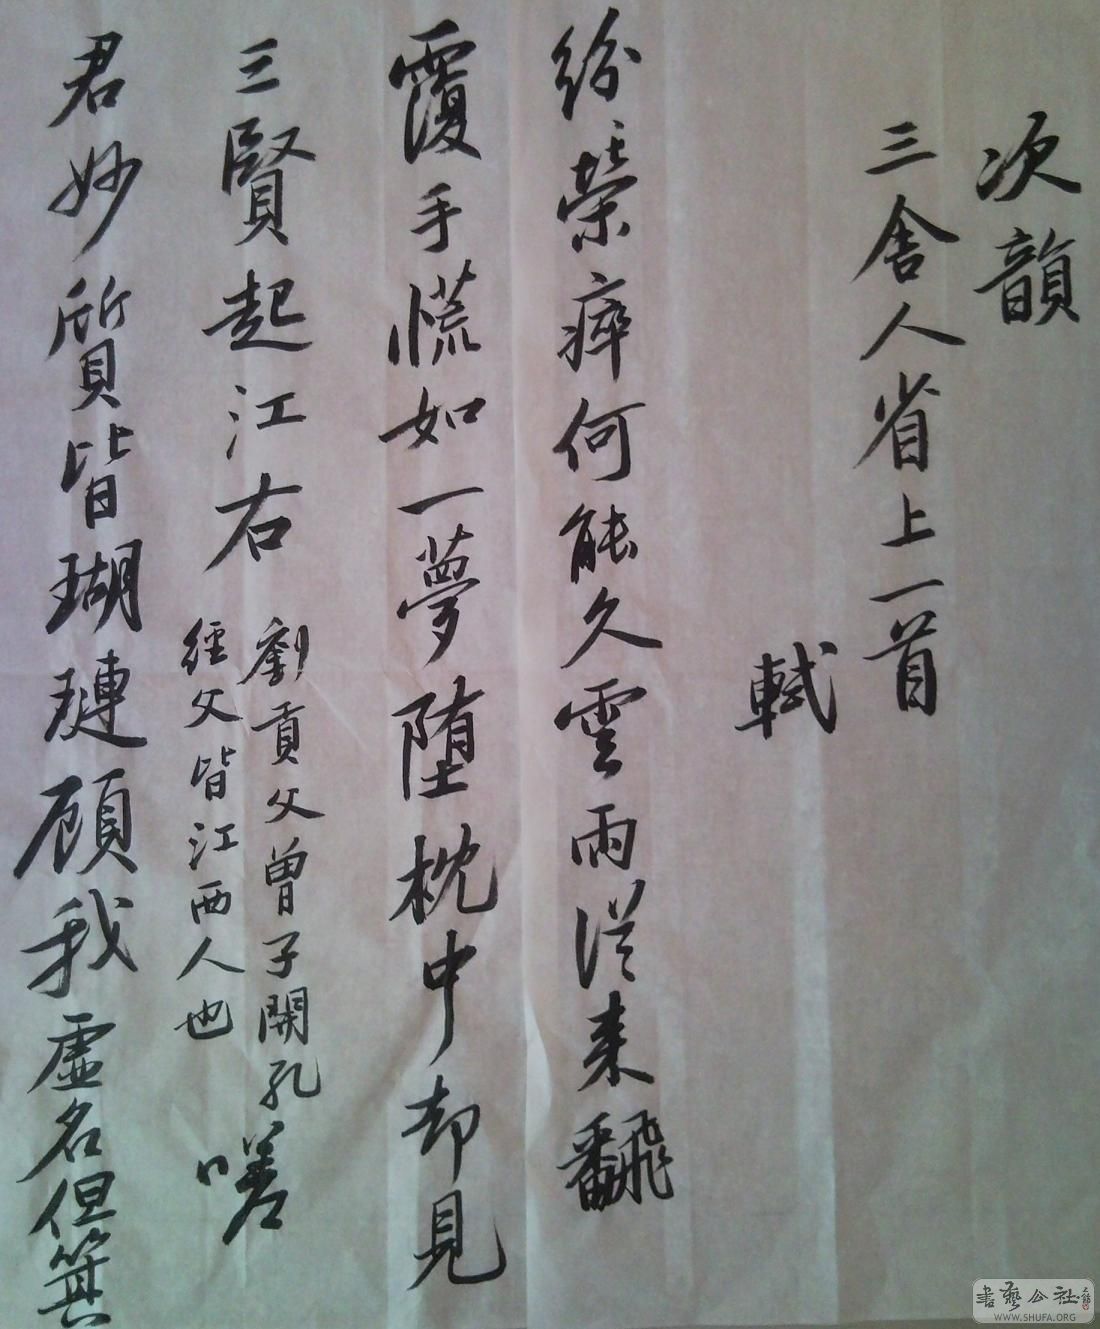 次韻
三舍人省上一首
軾
紛榮瘁何能久雲雨從来飜
覆手慌如一夢堕枕中却見
三賢起江右
劉貢父曾子開孔
經父皆江西人也
嗟
君妙質皆瑚璉顧我虛名但箕
書藝公社
WWW.SHUFA.ORG